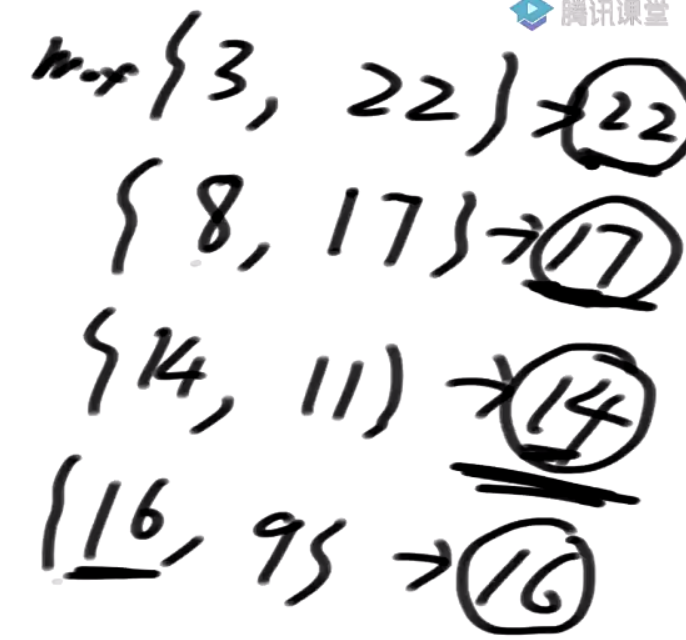 腾讯课堂
max {3, 22} → 22
{8, 17} → 17
{14, 11) → 14
{16, 9} → 16